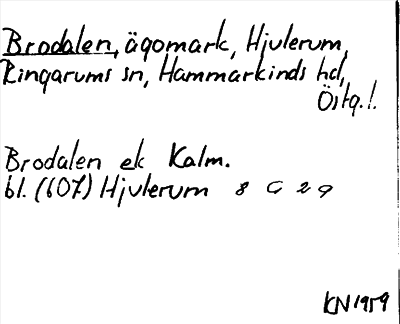 Brodalen, ägomark, Hjulerum,
Ringarums sn, Hammarkinds hd,
Östg. l.
Brodalen ek Kalm.
bl. (607) Hjulerum 8 G 2 g
KN 1959